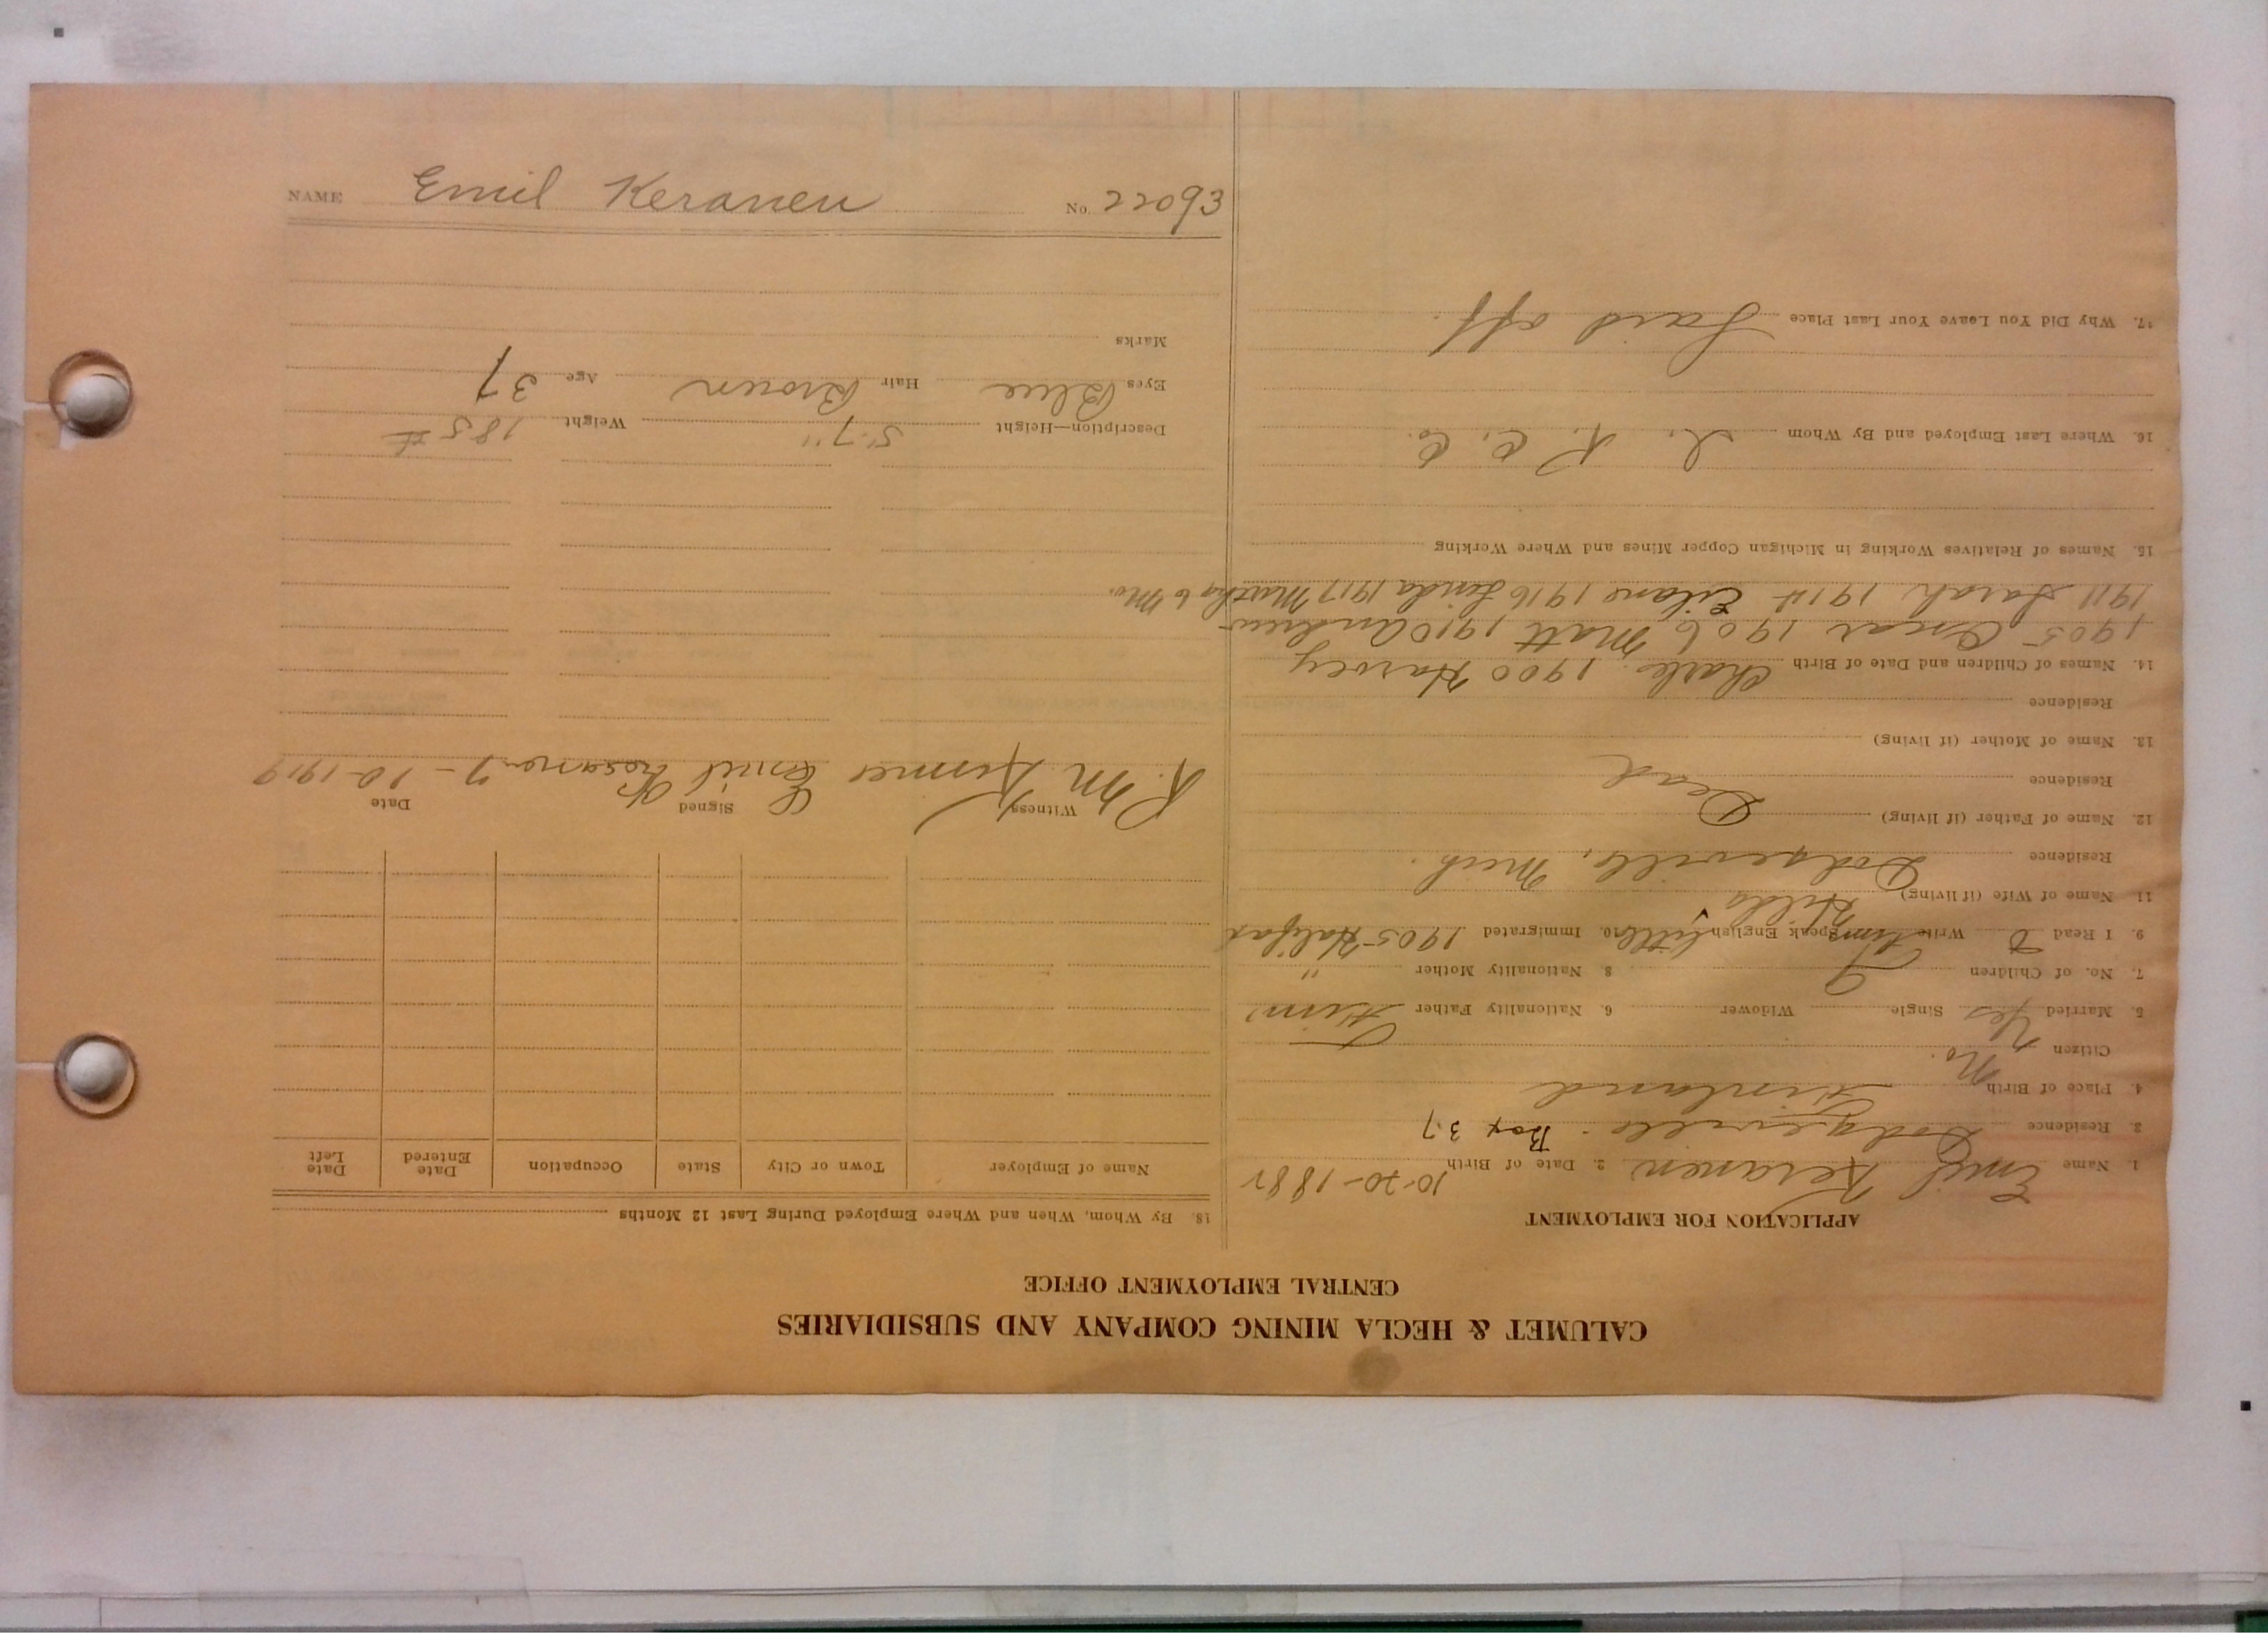 CALUMET & HECLA MINING COMPANY AND SUBSIDIARIES
CENTRAL EMPLOYMENT OFFICE
APPLICATION FOR EMPLOYMENT
1. Name Emil Keranen 2. Date of Birth 10-20-1882
3. Residence Dodgeville - Box 37
4. Place of Birth Finland
Citizen No.
5. Married Yes Single Widower 6. Nationality Father Finn
7. No. of Children 9 8 Nationality Mother "
9. I Read Write Finn Speak English little 10. Immigrated 1905 Halifax
11 Name of Wife (if living) Hilda
Residence Dodgeville, Mich.
12. Name of Father (if living) Dead
Residence
13. Name of Mother (if living)
Residence
14. Names of Children and Date of Birth Charles 1900 Harvey
1905 Oscar 1906 Matt 1910 Andrew
1911 Sarah 1914 1916 Linda 1917 Martha 6 Mo.
15. Names of Relatives Working in Michigan Copper Mines and Where Working
16. Where Last Employed and By Whom I. R. C. Co.
17. Why Did You Leave Your Last Place Laid off.
18. By Whom, When and Where Employed During Last 12 Months
Name of Employer Town or City State Occupation Date Entered Date Left
Witness Signed Date
R. M. Emil 7-10-1919
Description—Height 5'.7" Weight 185 #
Eyes Blue Hair Brown Age 37
Marks
NAME Emil Keranen No. 22093